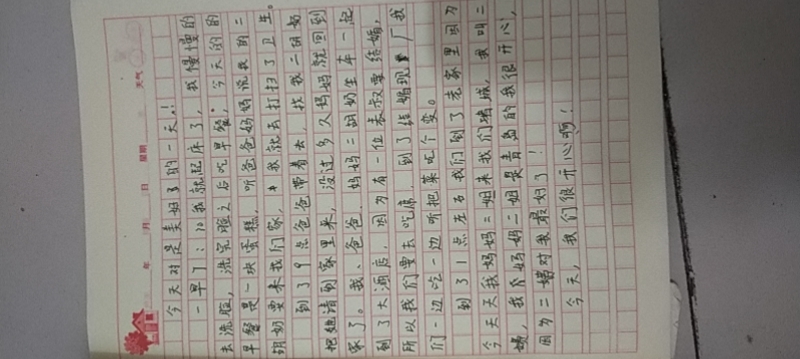 年 月 日 星期 天气
今天对是美好了的一天!
一早了:10我就起床了,我慢慢的
去洗脸,洗完脸之后吃早餐。今天的的
早餐是一块蛋糕,听爸爸妈妈说我的二
胡奶要来我们家,我就去打扫了卫生。
到了9点爸爸带着去,找我二胡奶
把她请到家里来,没过多久妈妈就回到
家了。我、爸爸、妈妈二胡奶坐车一起
到了大酒店,因为有一位表叔要结婚,
所以我们要去吃席,到了结婚现厂我
们一边吃一边听把菜吃个变。
到了1点左右我们到了老家里因为
今天天我妈妈二姐来我们诸城,我叫二
姨,我妈妈二姐是青岛的我很开心,
因为二姨对我最好了!
今天,我们很开心啊!